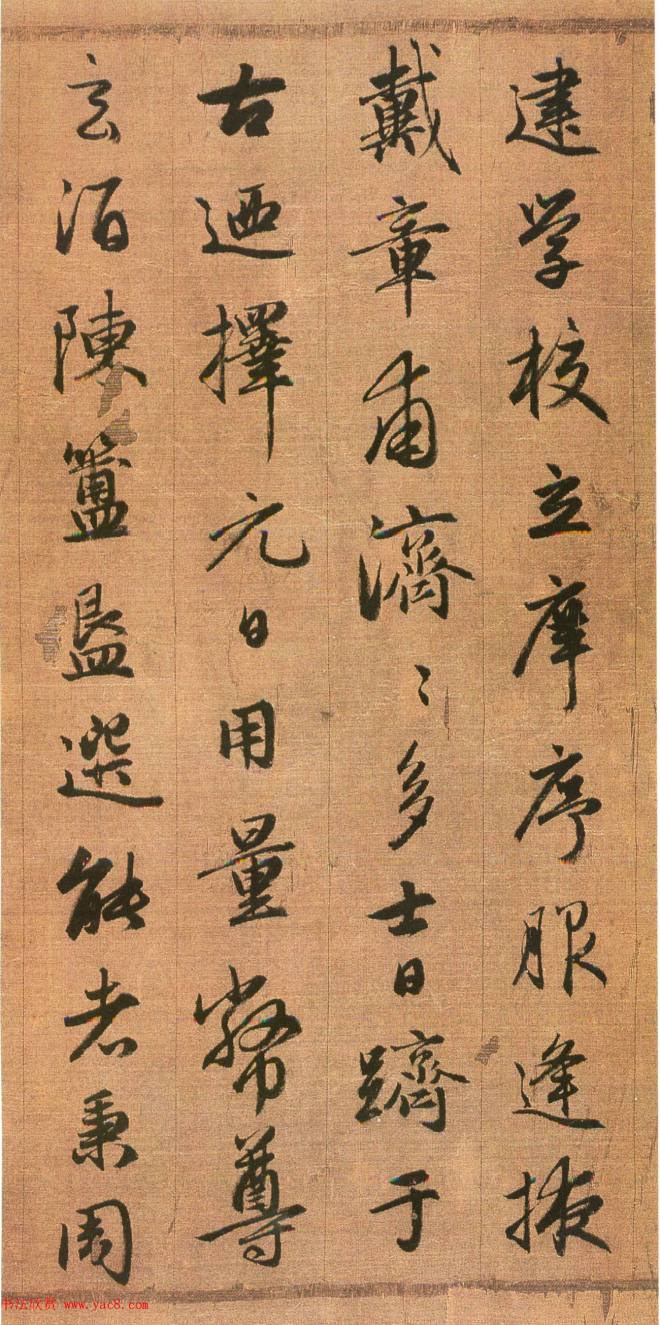 建学校立庠序服逢掖
戴章甫濟〻多士日躋于
古迺擇元日用量幣尊
玄酒陳簠簋選能者秉周
书法欣赏 www.yac8.com